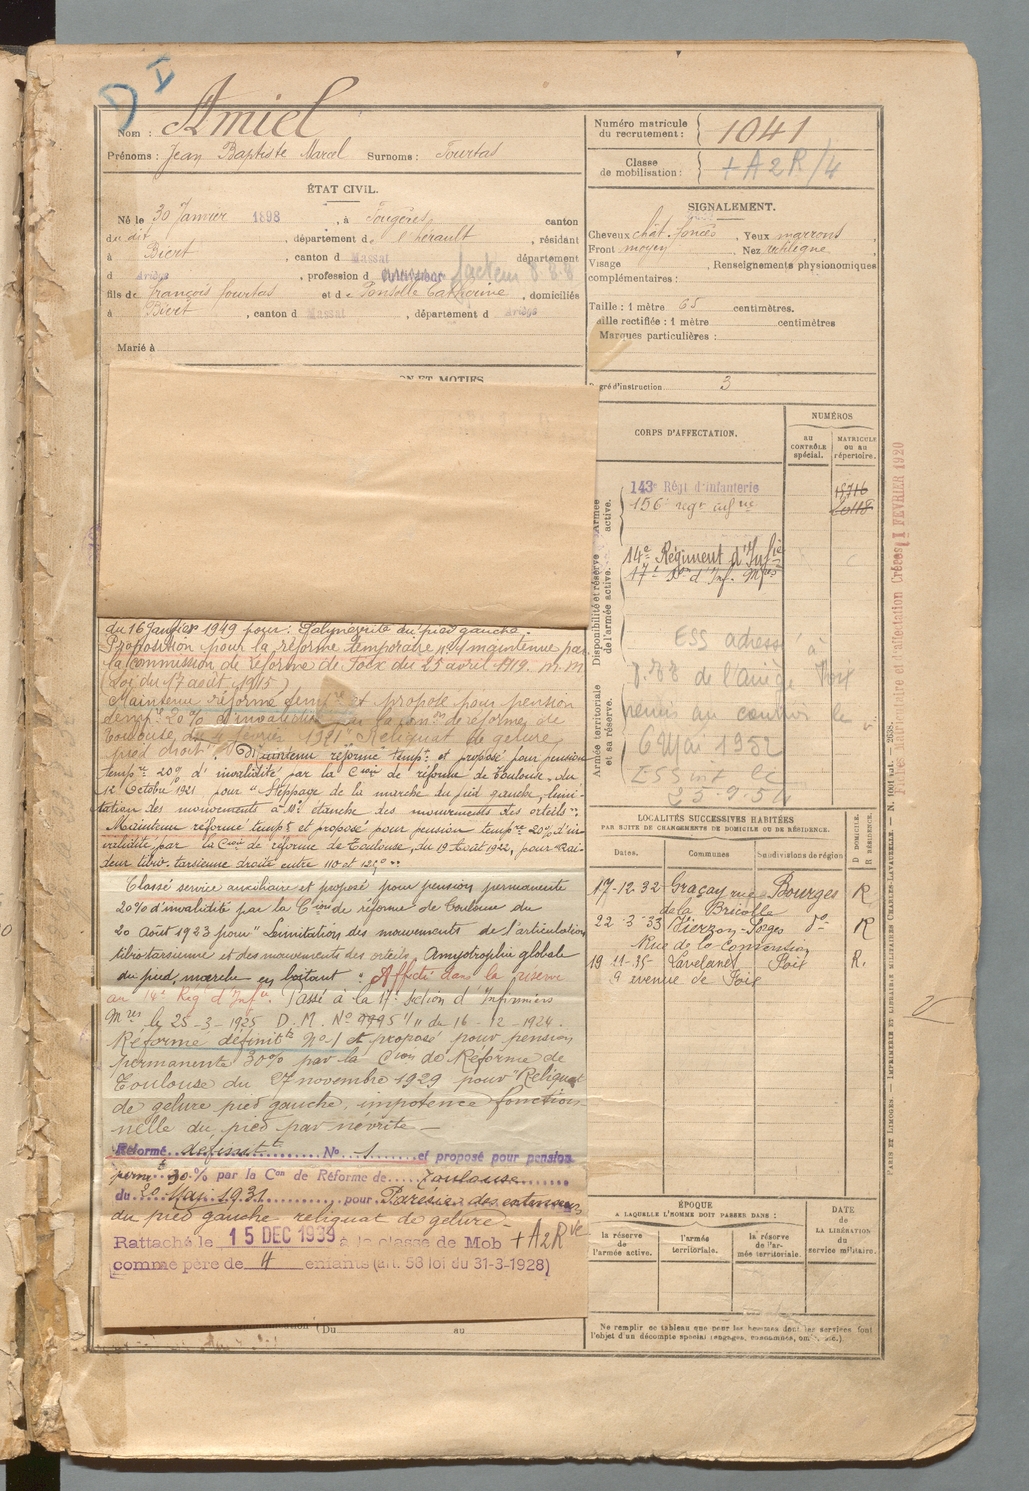 D I
Nom : Amiel
Prénoms : Jean Baptiste Marcel Surnoms : Fourtas
Numéro matricule du recrutement : 1041
Classe de mobilisation : +A2R/4
ÉTAT CIVIL.
Né le 30 Janvier 1898, à Fougères, canton
du dit, département de l'hérault, résidant
à Biert, canton d Massat département
d Ariège, profession d Cultivateur facteur
fils de François fourtas et de Ponsolle Catherine, domiciliés
à Biert, canton d Massat, département d Ariège
Marié à
SIGNALEMENT.
Cheveux chât. foncés, Yeux marrons,
Front moyen Nez rectiligne,
Visage , Renseignements physionomiques
complémentaires :
Taille : 1 mètre 65 centimètres.
aille rectifiée : 1 mètre centimètres
Marques particulières :
gré d'instruction 3
ON ET MOTIFS
du 16 Janvier 1949 pour : Polynévrite du pied gauche.
Proposition pour la réforme temporaire n° 1 maintenue par
la commission de réforme de Foix du 25 avril 1919. M.M
(Loi du 17 août 1915)
Maintenu réformé temp re et proposé pour pension
temp re 20% d'invalidité par la Com on de réformes de
Toulouse, du 4 février 1921 "Reliquat de gelure
pied droit". Maintenu réformé temp t et proposé pour pension
temp re 20% d'invalidité par la C ion de réforme de Toulouse, du
12 Octobre 1921 pour "Steppage de la marche du pied gauche, limi-
tation des mouvements à 10° étanche des mouvements des orteils".
Maintenu réformé temp t et proposé pour pension temp re 20% d'in
validité par la C ion de réforme de Toulouse, du 19 Août 1922, pour "Rai-
deur tibio-tarsienne droite entre 110 et 125° "
Classé service auxiliaire et proposé pour pension permanente
20% d'invalidité par la C ion de réforme de Toulouse du
20 Août 1923 pour "Limitation des mouvements de l'articulation
tibio-tarsienne et des mouvements des orteils. Amyotrophie globale
du pied, marche en boitant". Affecté dans la réserve
au 14e Rég d'Inf ie. Passé à la 17e Section d'Infirmiers
M res le 25-3-1925 D.M. N° 9995 "/" du 16-12-1924.
Réformé définit t N° 1 et proposé pour pension
permanente 30% par la C ion de Réforme de
Toulouse du 27 novembre 1929 pour "Reliquat
de gelure pied gauche, impotence fonction-
nelle du pied par névrite –
Réformé définit t N° 1 et proposé pour pension
perm te 30 % par la C on de Réforme de Toulouse
du 20 Mai 1931, pour Parésie des extenseurs
du pied gauche reliquat de gelure –
Rattaché le 15 DEC 1939 à la classe de Mob +A2R ve
comme père de 4 enfants (art. 58 loi du 31-3-1928)
(Du au
CORPS D'AFFECTATION.
NUMÉROS
AU CONTRÔLE spécial.
MATRICULE OU AU répertoire.
Armée active.
143e Régt d'Infanterie
156e regt inf rie
Disponibilité et réserve de l'armée active.
14e Régiment d'Inf ie
17e S on d'Inf. M res
Armée territoriale et sa réserve.
ESS adressé à
de l'Ariège Foix
le
6 Mai 1952
ESS
LOCALITÉS SUCCESSIVES HABITÉES
PAR SUITE DE CHANGEMENTS DE DOMICILE OU DE RÉSIDENCE.
D DOMICILE. R RÉSIDENCE.
Dates. Communes Subdivisions de région
17-12-32 Graçay rue de la Bricolle Bourges R
22-3-33 Vierzon-Forges d° R
Rue de la Convention
19-11-35 Lavelanet Foix R.
9 avenue de Foix
ÉPOQUE
A LAQUELLE L'HOMME DOIT PASSER DANS :
la réserve de l'armée active.
l'armée territoriale.
la réserve de l'armée territoriale.
DATE de LA LIBÉRATION du service militaire.
Ne remplir ce tableau que pour les hommes dont les services font
l'objet d'un décompte spécial (engagés, etc.).
PARIS ET LIMOGES. — IMPRIMERIE ET LIBRAIRIE MILITAIRES CHARLES-LAVAUZELLE. — N. 2638.
Fiches Matriculaire et d'affectation Créées 1 FEVRIER 1920